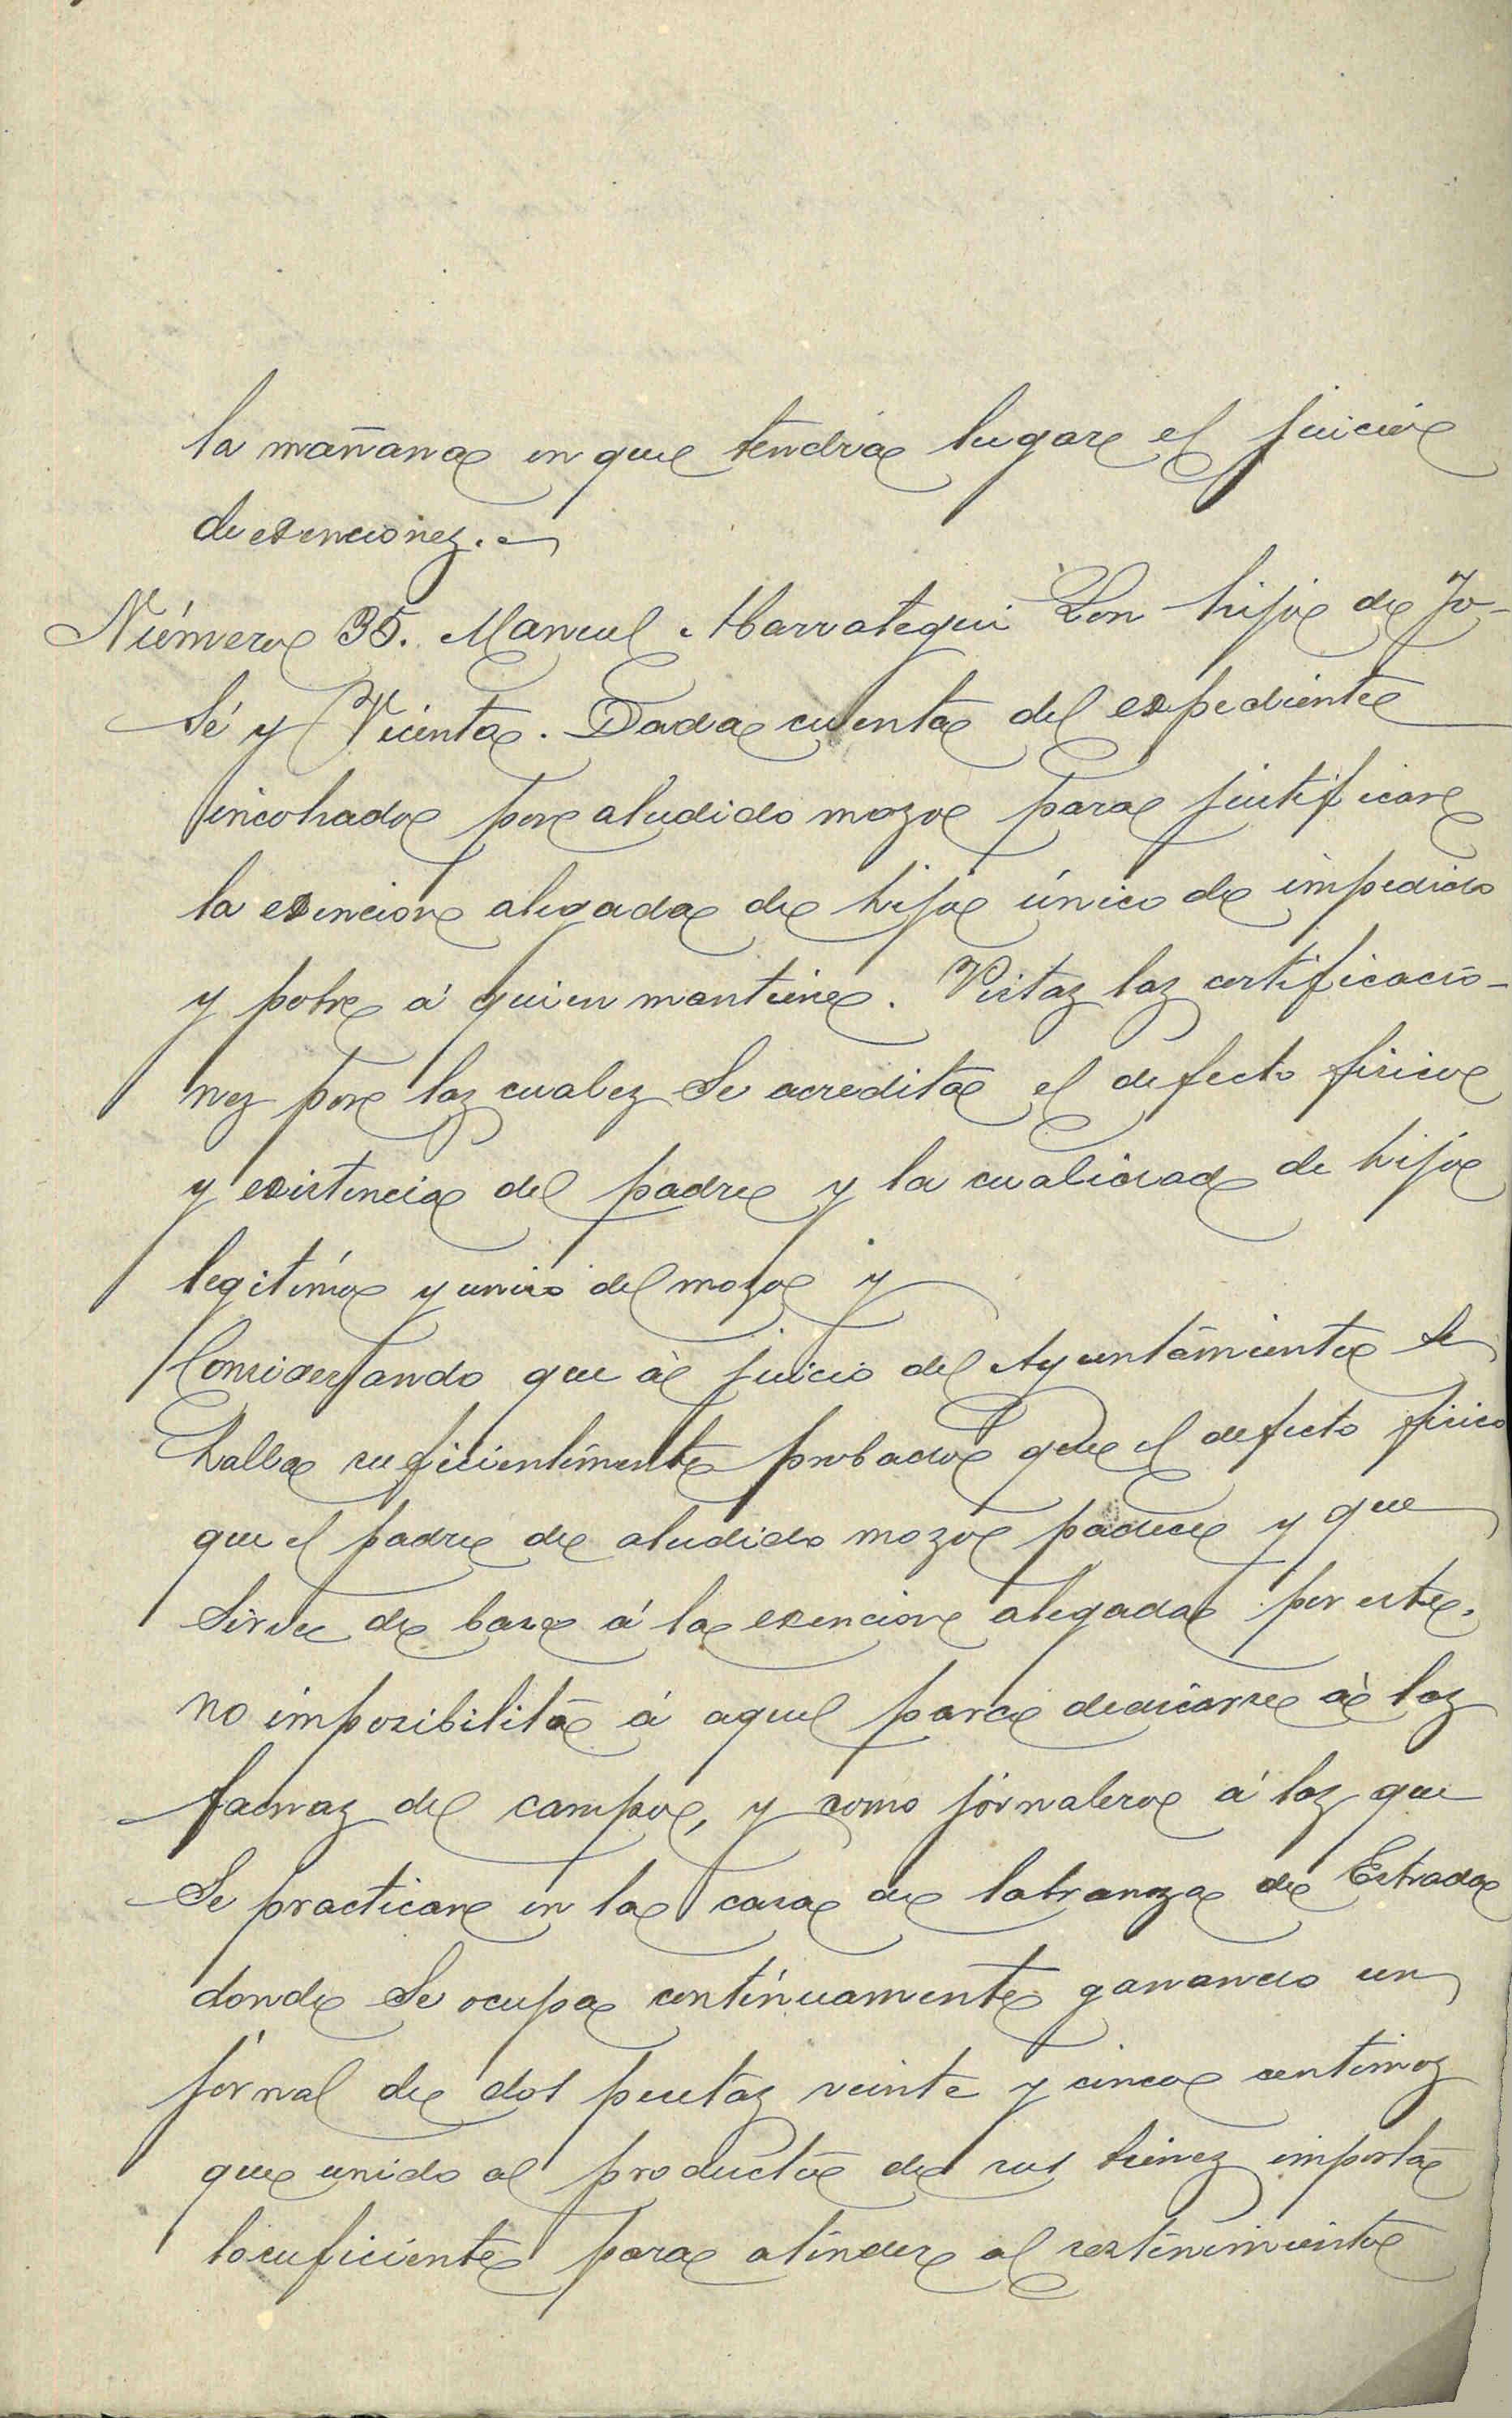 la mañana en que tendria lugar el juicio
de exenciones.
Número 35. Manuel Abarrategui Lon hijo de Jo-
sé y Vicenta. Dada cuenta del expediente
incohado por aludido mozo para justificar
la exencion alegada de hijo único de impedido
y pobre á quien mantiene. Vistas las certificacio-
nes por las cuales se acredita el defecto fisico
y existencia del padre y la cualidad de hijo
legitimo y unico del mozo y
Considerando que á juicio del Ayuntamiento se
halla suficientemente probado que el defecto fisico
que el padre de aludido mozo padece y que
sirve de base á la exencion alegada por este,
no imposibilita á aquel para dedicarse á las
faenas del campo, y como jornalero á las que
se practican en la casa de labranza de Estrada
donde se ocupa continuamente ganando un
jornal de dos pesetas veinte y cinco centimos
que unido al producto de sus bienes importa
lo suficiente para atender al sostenimiento